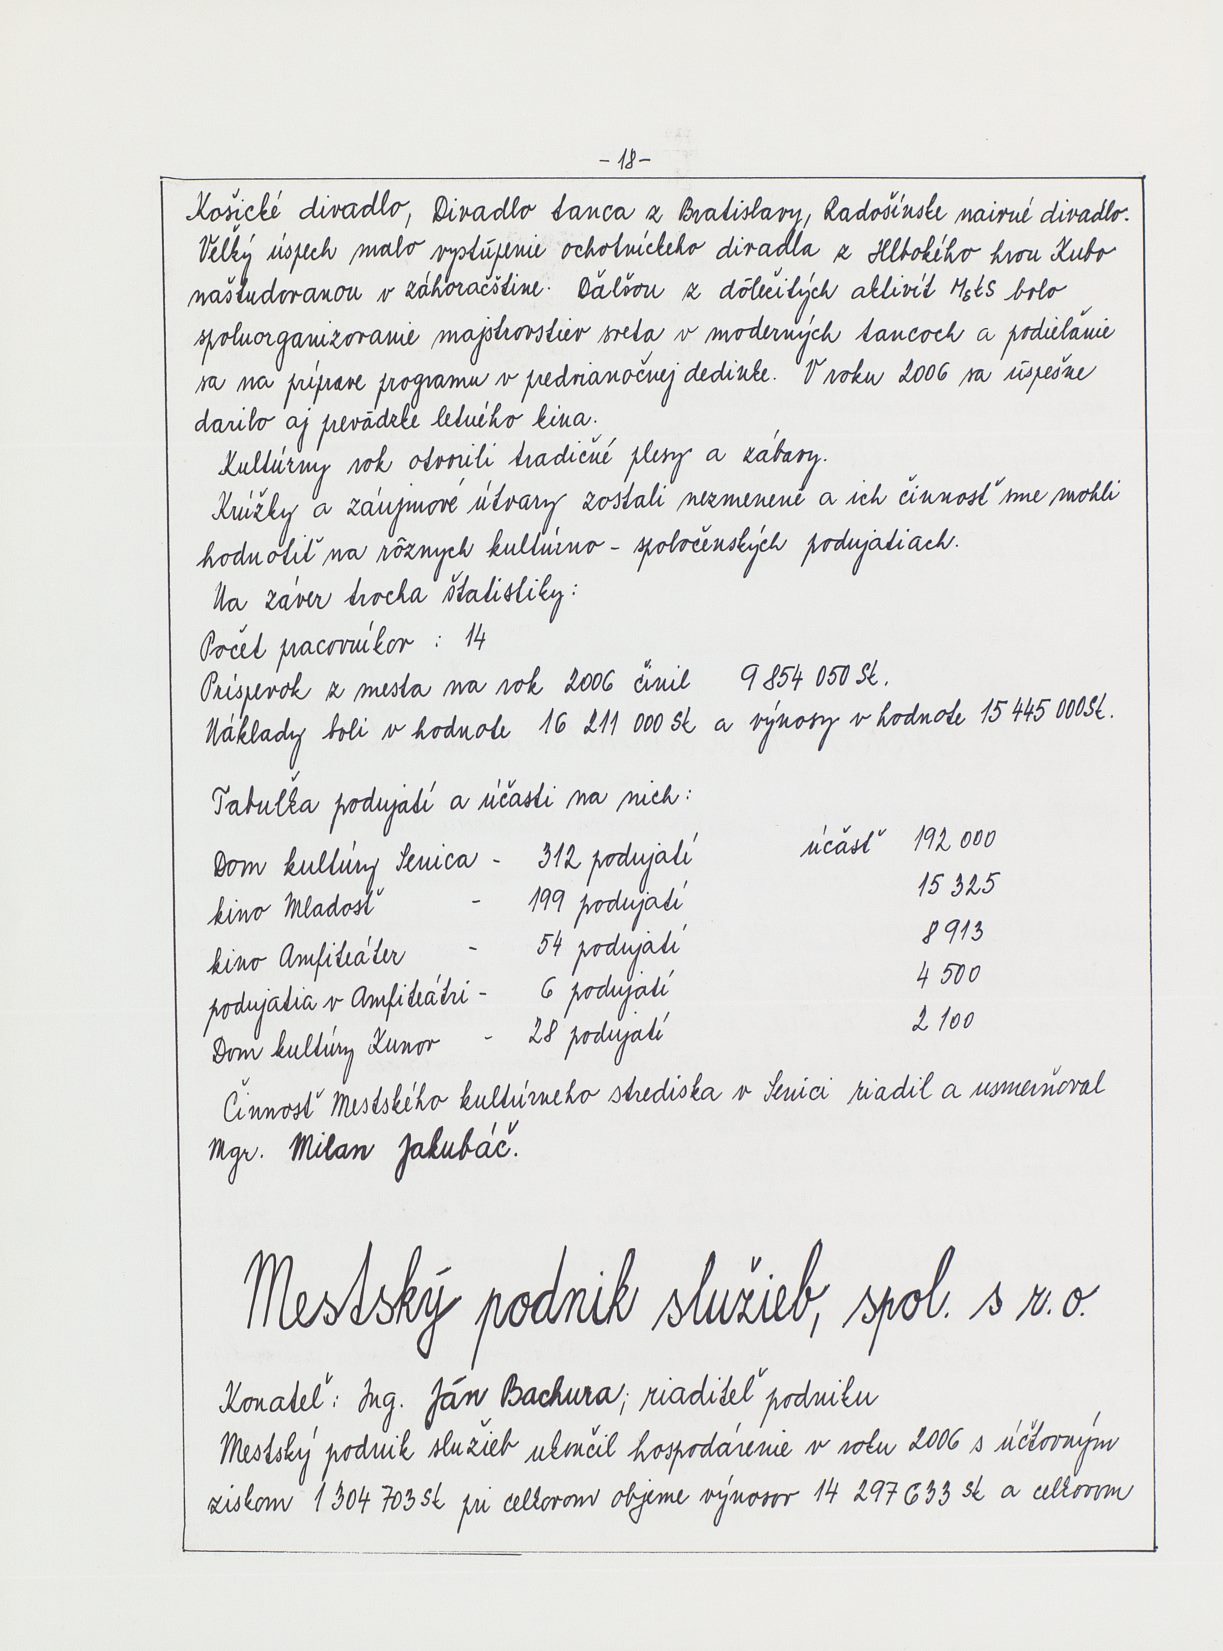 - 18 -
Košické divadlo, Divadlo tanca z Bratislavy, Radošínske naivné divadlo.
Veľký úspech malo vystúpenie ochotníckeho divadla z Hlbokého hrou Kubo
naštudovanou v záhoráčštine. Ďalšou z dôležitých aktivít MsKS bolo
spoluorganizovanie majstrovstiev sveta v moderných tancoch a podieľanie
sa na príprave programu v predvianočnej dedinke. V roku 2006 sa úspešne
darilo aj prevádzke letného kina.
Kultúrny rok otvorili tradičné plesy a zábavy.
Krúžky a záujmové útvary zostali nezmenené a ich činnosť sme mohli
hodnotiť na rôznych kultúrno - spoločenských podujatiach.
Na záver trocha štatistiky:
Počet pracovníkov : 14
Príspevok z mesta na rok 2006 činil 9 854 050 Sk.
Náklady boli v hodnote 16 211 000 Sk a výnosy v hodnote 15 445 000 Sk.
Tabuľka podujatí a účasti na nich:
Dom kultúry Senica - 312 podujatí účasť 192 000
kino Mladosť - 199 podujatí 15 325
kino Amfiteáter - 54 podujatí 8 913
podujatia v Amfiteátri - 6 podujatí 4 500
Dom kultúry Kunov - 28 podujatí 2 100
Činnosť Mestského kultúrneho strediska v Senici riadil a usmerňoval
Mgr. Milan Jakubáč.
Mestský podnik služieb, spol. s r. o.
Konateľ: Ing. Ján Bachura, riaditeľ podniku
Mestský podnik služieb ukončil hospodárenie v roku 2006 s účtovným
ziskom 1 304 703 Sk pri celkovom objeme výnosov 14 297 633 Sk a celkovom